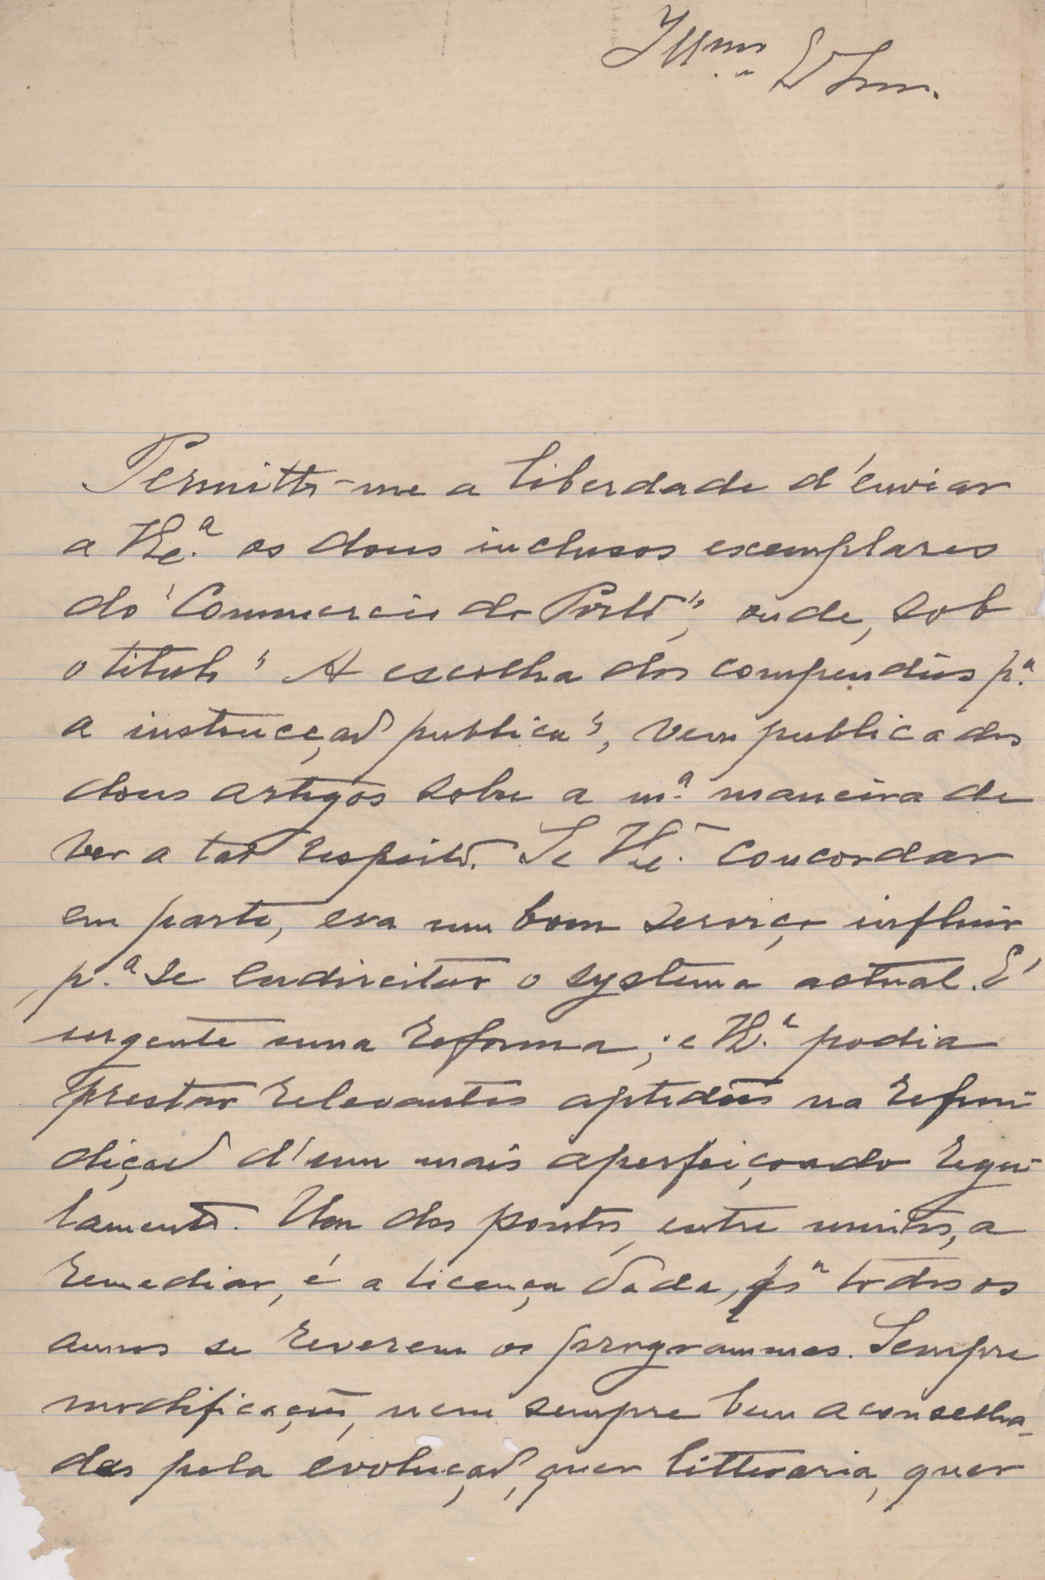 Illmo Ex Snr.
Permitta-me a liberdade d'enviar
a V. Ex.ª os dous inclusos exemplares
do "Commercio do Porto", onde, sob
o titulo "A escolha dos compendios p.ª
a instrucção publica", vem publicados
dous artigos sobre a m.ª maneira de
ver a tal respeito. Se V. Ex.ª concordar
em parte, era um bom serviço influir
p.ª se endireitar o systema actual. É
urgente uma reforma; e V. Ex.ª podia
prestar relevantes aptidões na refun-
dição d'um mais aperfeiçoado regu-
lamento. Um dos pontos, entre muitos, a
remediar, é a licença dada, p.ª todos os
annos se reverem os programmas. Sempre
modificações, nem sempre bem aconselha-
das pela evolução, quer litteraria, quer